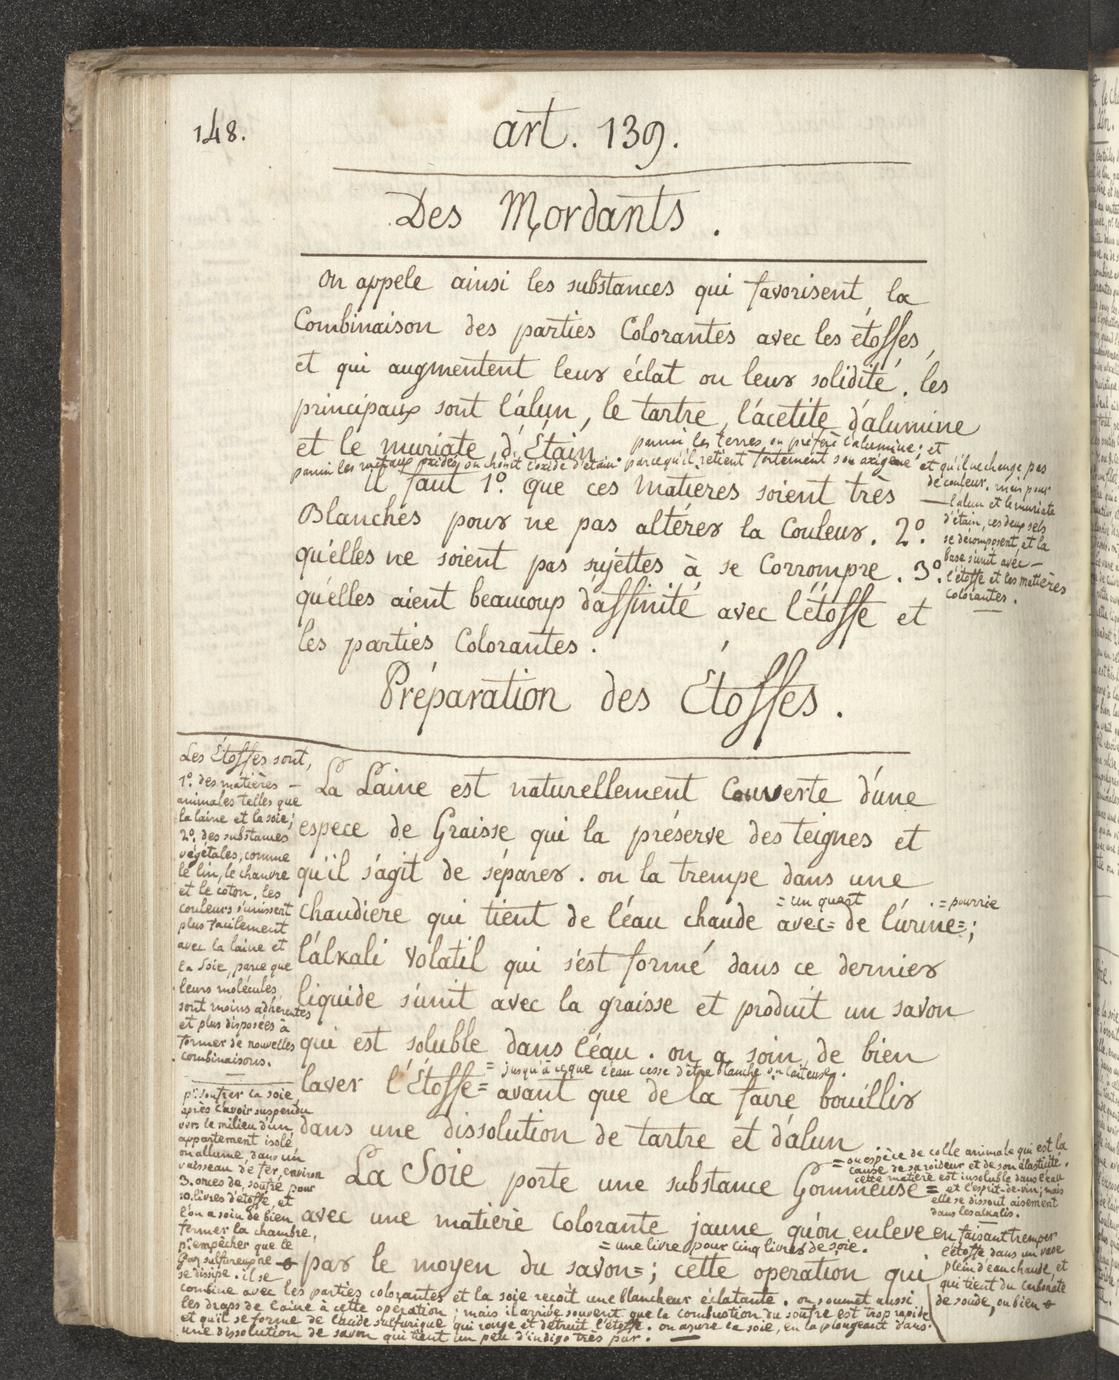 148.
art. 139.
Des Mordants.
On appele ainsi les substances qui favorisent la
Combinaison des parties Colorantes avec les étoffes,
et qui augmentent leur éclat ou leur solidité. les
principaux sont l'alun, le tartre, l'acetite d'alumine
et le muriate d'Étain
parmi les terres, on préfère l'alumine; et
parmi les métaux oxidés on choisit l'oxide d'étain parcequ'il retient fortement son oxigène et qu'il ne change pas
de couleur. mais pour
l'alun et le muriate
d'étain, ces deux sels
se décomposent et la
base s'unit avec
l'étoffe et les matières
colorantes.
Il faut 1º. que ces matieres soient très
Blanches pour ne pas altérer la Couleur. 2º.
qu'elles ne soient pas sujettes à se Corrompre. 3º.
qu'elles aient beaucoup d'affinité avec l'étoffe et
les parties Colorantes.
Préparation des Étoffes.
Les Étoffes sont,
1º. des matières
animales telles que
la laine et la soie;
2º. des substances
végétales, comme
le lin, le chanvre
et le coton. les
couleurs s'unissent
plus facilement
avec la laine et
la Soie, parce que
leurs molécules
sont moins adhérentes
et plus disposées à
former de nouvelles
combinaisons.
La Laine est naturellement Couverte d'une
espece de Graisse qui la préserve des teignes et
qu'il s'agit de séparer. on la trempe dans une
= un quart = pourrie
chaudiere qui tient de l'éau chaude avec= de l'urine=;
l'alkali Volatil qui s'est formé dans ce dernier
liquide s'unit avec la graisse et produit un savon
qui est soluble dans l'éau. on a soin de bien
= jusqu'à ceque l'eau cesse d'être blanche ou laiteuse.
laver l'Étoffe= avant que de la faire bouillir
dans une dissolution de tartre et d'alun
La Soie porte une substance Gommeuse=
= ou espèce de colle animale qui est la
cause de sa roideur et de son élasticité.
cette matière est insoluble dans l'eau
et l'esprit-de-vin; mais
elle se dissout aisement
dans les alkalis.
avec une matière colorante jaune qu'on enleve
en faisant tremper
l'étoffe dans un vase
plein d'eau chaude et
qui tient du carbonate
de soude, ou bien
= une livre pour cinq livres de soie.
par le moyen du savon=; cette operation qui
pr. soufrer la soie,
après l'avoir suspendue
vers le milieu d'un
appartement isolé
on allume, dans un
vaisseau de fer, environ
3. onces de soufre pour
10. livres d'étoffe, et
l'on a soin de bien
fermer la chambre,
pr. empêcher que le
Gaz sulfureux ne
se dissipe. il se
combine avec les parties colorantes et la soie reçoit une blancheur éclatante. on soumet aussi
les draps de laine à cette operation; mais il arrive souvent que la combustion du soufre est trop rapide
et qu'il se forme de l'acide sulfurique qui ronge et détruit l'étoffe. on azure la soie, en la plongeant dans
une dissolution de savon qui tient un peu d'indigo très pur.